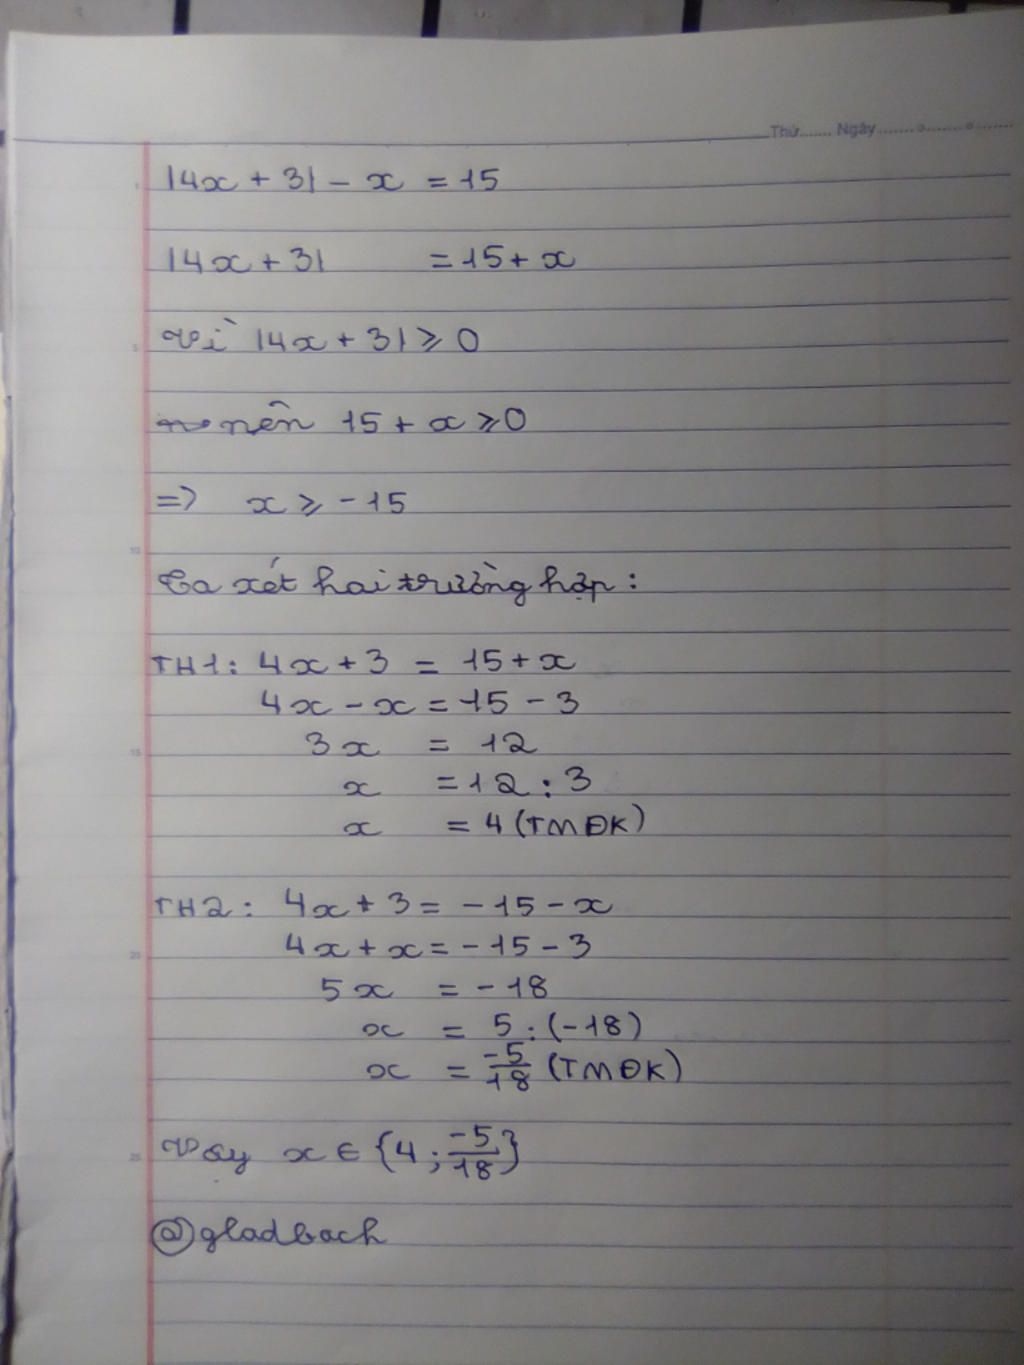 Thứ....... Ngày.......
|4x + 3| - x = 15
|4x + 3| = 15 + x
Vì |4x + 3| ⩾ 0
nên 15 + x ⩾ 0
=> x ⩾ -15
Ta xét hai trường hợp :
TH1: 4x + 3 = 15 + x
4x - x = 15 - 3
3x = 12
x = 12 : 3
x = 4 (TMĐK)
TH2: 4x + 3 = -15 - x
4x + x = -15 - 3
5x = -18
x = 5 : (-18)
x = -5/18 (TMĐK)
Vậy x ∈ {4 ; -5/18}
@gladbach